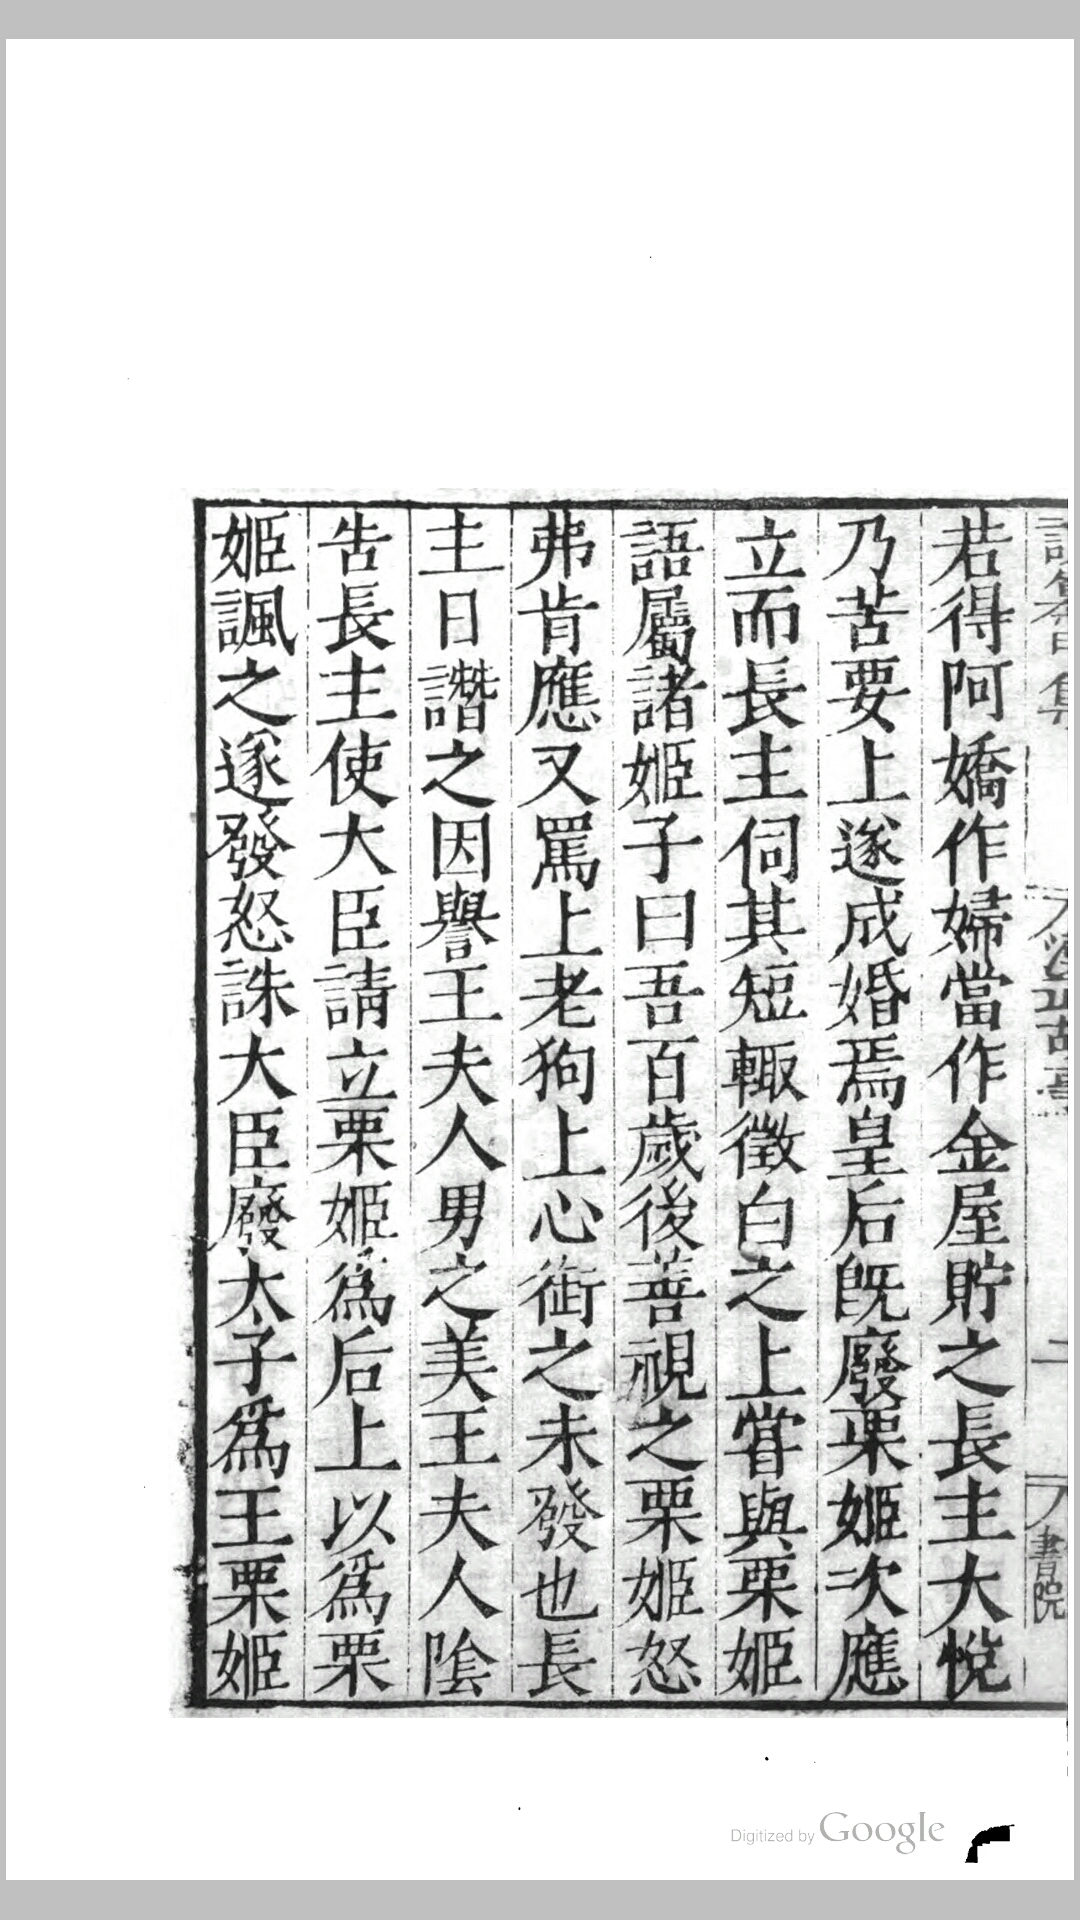 若得阿嬌作婦當作金屋貯之長主大悅
乃苦要上遂成婚焉皇后旣廢栗姬次應
立而長主伺其短輙徵白之上甞與栗姬
語屬諸姬子曰吾百歲後善視之栗姬怒
弗肯應又罵上老狗上心銜之未發也長
主日譖之因譽王夫人男之美王夫人陰
告長主使大臣請立栗姬爲后上以爲栗
姬諷之遂發怒誅大臣廢太子爲王栗姬
二
書院
Digitized by Google